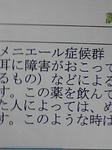 メニエール症候群
耳に障害がおこって
るもの）などによる
す。この薬を飲んで
た人によっては、め
す。このような時は